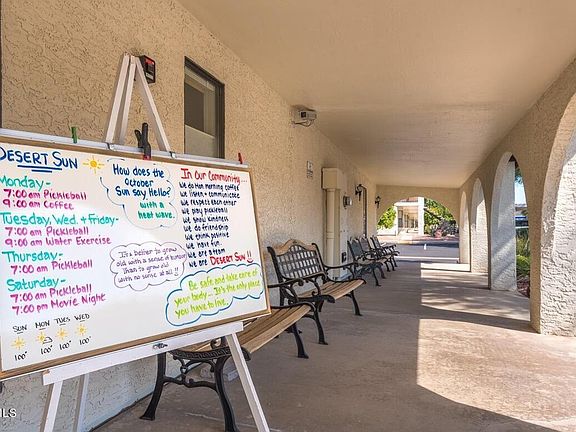 DESERT SUN
Monday-
7:00 am Pickleball
9:00 am Coffee
Tuesday, Wed. & Friday-
7:00 am Pickleball
9:00 am Water Exercise
Thursday-
7:00 am Pickleball
Saturday-
7:00 am Pickleball
7:00 pm Movie Night
SUN MON TUES WED
100° 100° 100° 100°
How does the
October
Sun say Hello?
with a
heat wave.
It's Better to grow
old with a sense of humor
than to grow old
with no sense at all!!
In Our Community...
We do Mon morning coffee
We listen & communicate
We respect each other
We play pickleball
We show kindness
We do friendship
We think positive
We have fun.
We are a team
We are DESERT SUN!!
Be safe and take care of
your body- It's the only place
you have to live.
MLS